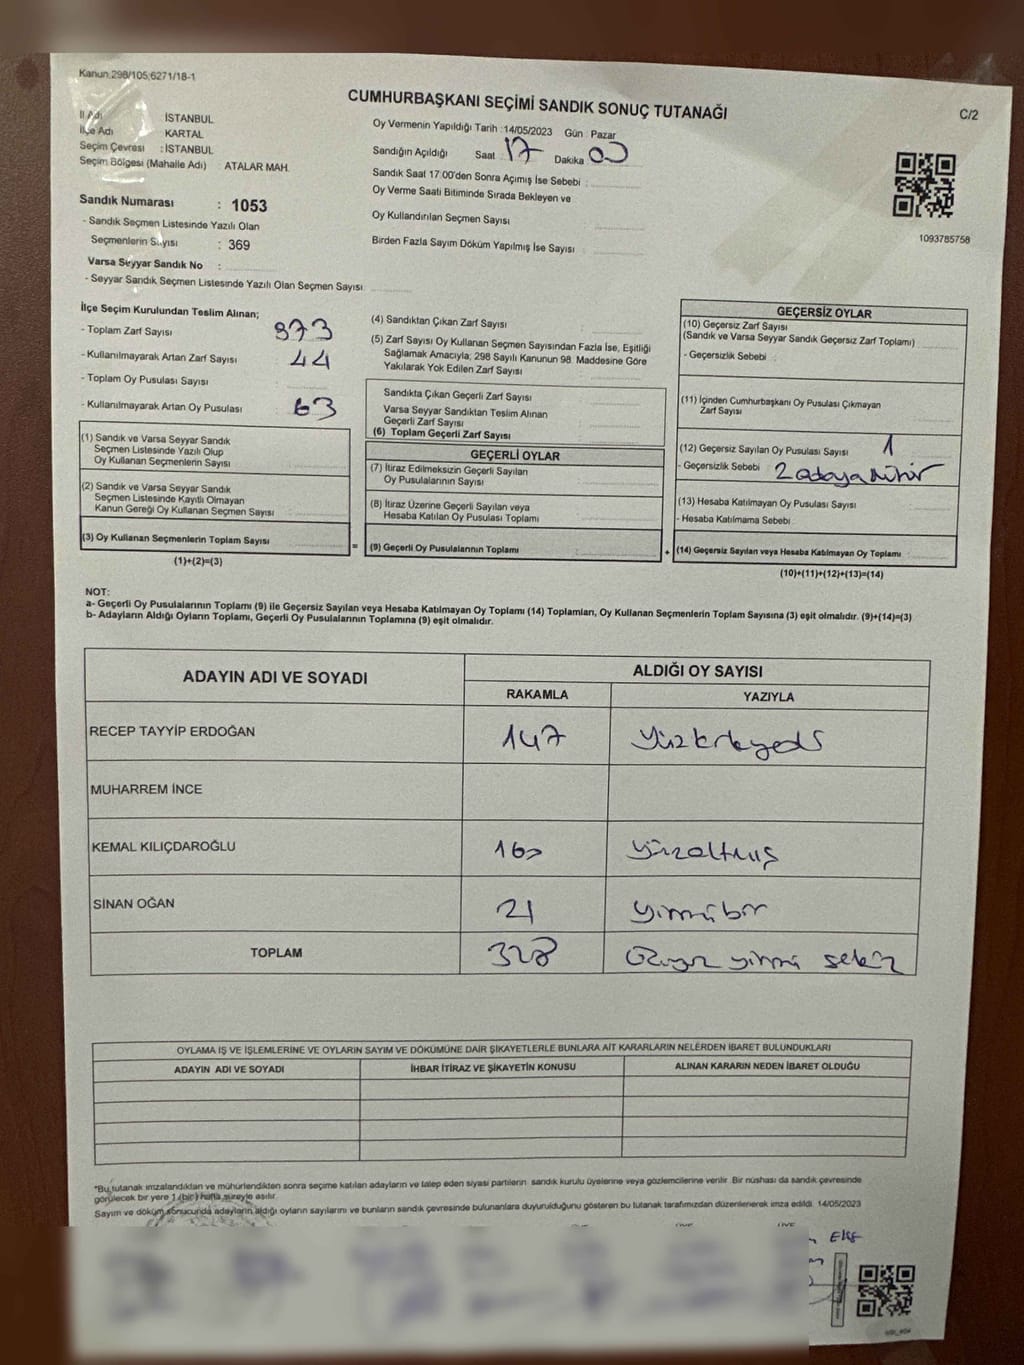 Kanun:298/105,6271/18-1
CUMHURBAŞKANI SEÇİMİ SANDIK SONUÇ TUTANAĞI
C/2
İl Adı İSTANBUL
İlçe Adı KARTAL
Seçim Çevresi : İSTANBUL
Seçim Bölgesi (Mahalle Adı) ATALAR MAH.
Sandık Numarası : 1053
- Sandık Seçmen Listesinde Yazılı Olan
Seçmenlerin Sayısı : 369
Varsa Seyyar Sandık No :
- Seyyar Sandık Seçmen Listesinde Yazılı Olan Seçmen Sayısı
Oy Vermenin Yapıldığı Tarih : 14/05/2023 Gün : Pazar
Sandığın Açıldığı Saat 17 Dakika 00
Sandık Saat 17:00'den Sonra Açımış İse Sebebi :
Oy Verme Saati Bitiminde Sırada Bekleyen ve
Oy Kullandırılan Seçmen Sayısı
Birden Fazla Sayım Döküm Yapılmış İse Sayısı
1093785758
İlçe Seçim Kurulundan Teslim Alınan;
- Toplam Zarf Sayısı 373
- Kullanılmayarak Artan Zarf Sayısı 44
- Toplam Oy Pusulası Sayısı
- Kullanılmayarak Artan Oy Pusulası 63
(1) Sandık ve Varsa Seyyar Sandık
Seçmen Listesinde Yazılı Olup
Oy Kullanan Seçmenlerin Sayısı
(2) Sandık ve Varsa Seyyar Sandık
Seçmen Listesinde Kayıtlı Olmayan
Kanun Gereği Oy Kullanan Seçmen Sayısı
(3) Oy Kullanan Seçmenlerin Toplam Sayısı =
(1)+(2)=(3)
(4) Sandıktan Çıkan Zarf Sayısı
(5) Zarf Sayısı Oy Kullanan Seçmen Sayısından Fazla İse, Eşitliği
Sağlamak Amacıyla; 298 Sayılı Kanunun 98. Maddesine Göre
Yakılarak Yok Edilen Zarf Sayısı
Sandıkta Çıkan Geçerli Zarf Sayısı
Varsa Seyyar Sandıktan Teslim Alınan
Geçerli Zarf Sayısı
(6) Toplam Geçerli Zarf Sayısı
GEÇERLİ OYLAR
(7) İtiraz Edilmeksizin Geçerli Sayılan
Oy Pusulalarının Sayısı
(8) İtiraz Üzerine Geçerli Sayılan veya
Hesaba Katılan Oy Pusulası Toplamı
(9) Geçerli Oy Pusulalarının Toplamı +
GEÇERSİZ OYLAR
(10) Geçersiz Zarf Sayısı
(Sandık ve Varsa Seyyar Sandık Geçersiz Zarf Toplamı)
- Geçersizlik Sebebi
(11) İçinden Cumhurbaşkanı Oy Pusulası Çıkmayan
Zarf Sayısı
(12) Geçersiz Sayılan Oy Pusulası Sayısı 1
- Geçersizlik Sebebi : 2 adaya Mühür
(13) Hesaba Katılmayan Oy Pusulası Sayısı
- Hesaba Katılmama Sebebi
(14) Geçersiz Sayılan veya Hesaba Katılmayan Oy Toplamı
(10)+(11)+(12)+(13)=(14)
NOT:
a- Geçerli Oy Pusulalarının Toplamı (9) ile Geçersiz Sayılan veya Hesaba Katılmayan Oy Toplamı (14) Toplamları, Oy Kullanan Seçmenlerin Toplam Sayısına (3) eşit olmalıdır. (9)+(14)=(3)
b- Adayların Aldığı Oyların Toplamı, Geçerli Oy Pusulalarının Toplamına (9) eşit olmalıdır.
ADAYIN ADI VE SOYADI
ALDIĞI OY SAYISI
RAKAMLA YAZIYLA
RECEP TAYYİP ERDOĞAN 147 yüzkırkyedi
MUHARREM İNCE
KEMAL KILIÇDAROĞLU 160 yüzaltmış
SİNAN OĞAN 21 yirmibir
TOPLAM 328 üçyüz yirmi sekiz
OYLAMA İŞ VE İŞLEMLERİNE VE OYLARIN SAYIM VE DÖKÜMÜNE DAİR ŞİKAYETLERLE BUNLARA AİT KARARLARIN NELERDEN İBARET BULUNDUKLARI
ADAYIN ADI VE SOYADI İHBAR İTİRAZ VE ŞİKAYETİN KONUSU ALINAN KARARIN NEDEN İBARET OLDUĞU
*Bu tutanak imzalandıktan ve mühürlendikten sonra seçime katılan adayların ve talep eden siyasi partilerin sandık kurulu üyelerine veya gözlemcilerine verilir. Bir nüshası da sandık çevresinde
görülecek bir yere 1 (bir) hafta süreyle asılır.
Sayım ve döküm sonucunda adayların aldığı oyların sayılarını ve bunların sandık çevresinde bulunanlara duyurulduğunu gösteren bu tutanak tarafımızdan düzenlenerek imza edildi. 14/05/2023